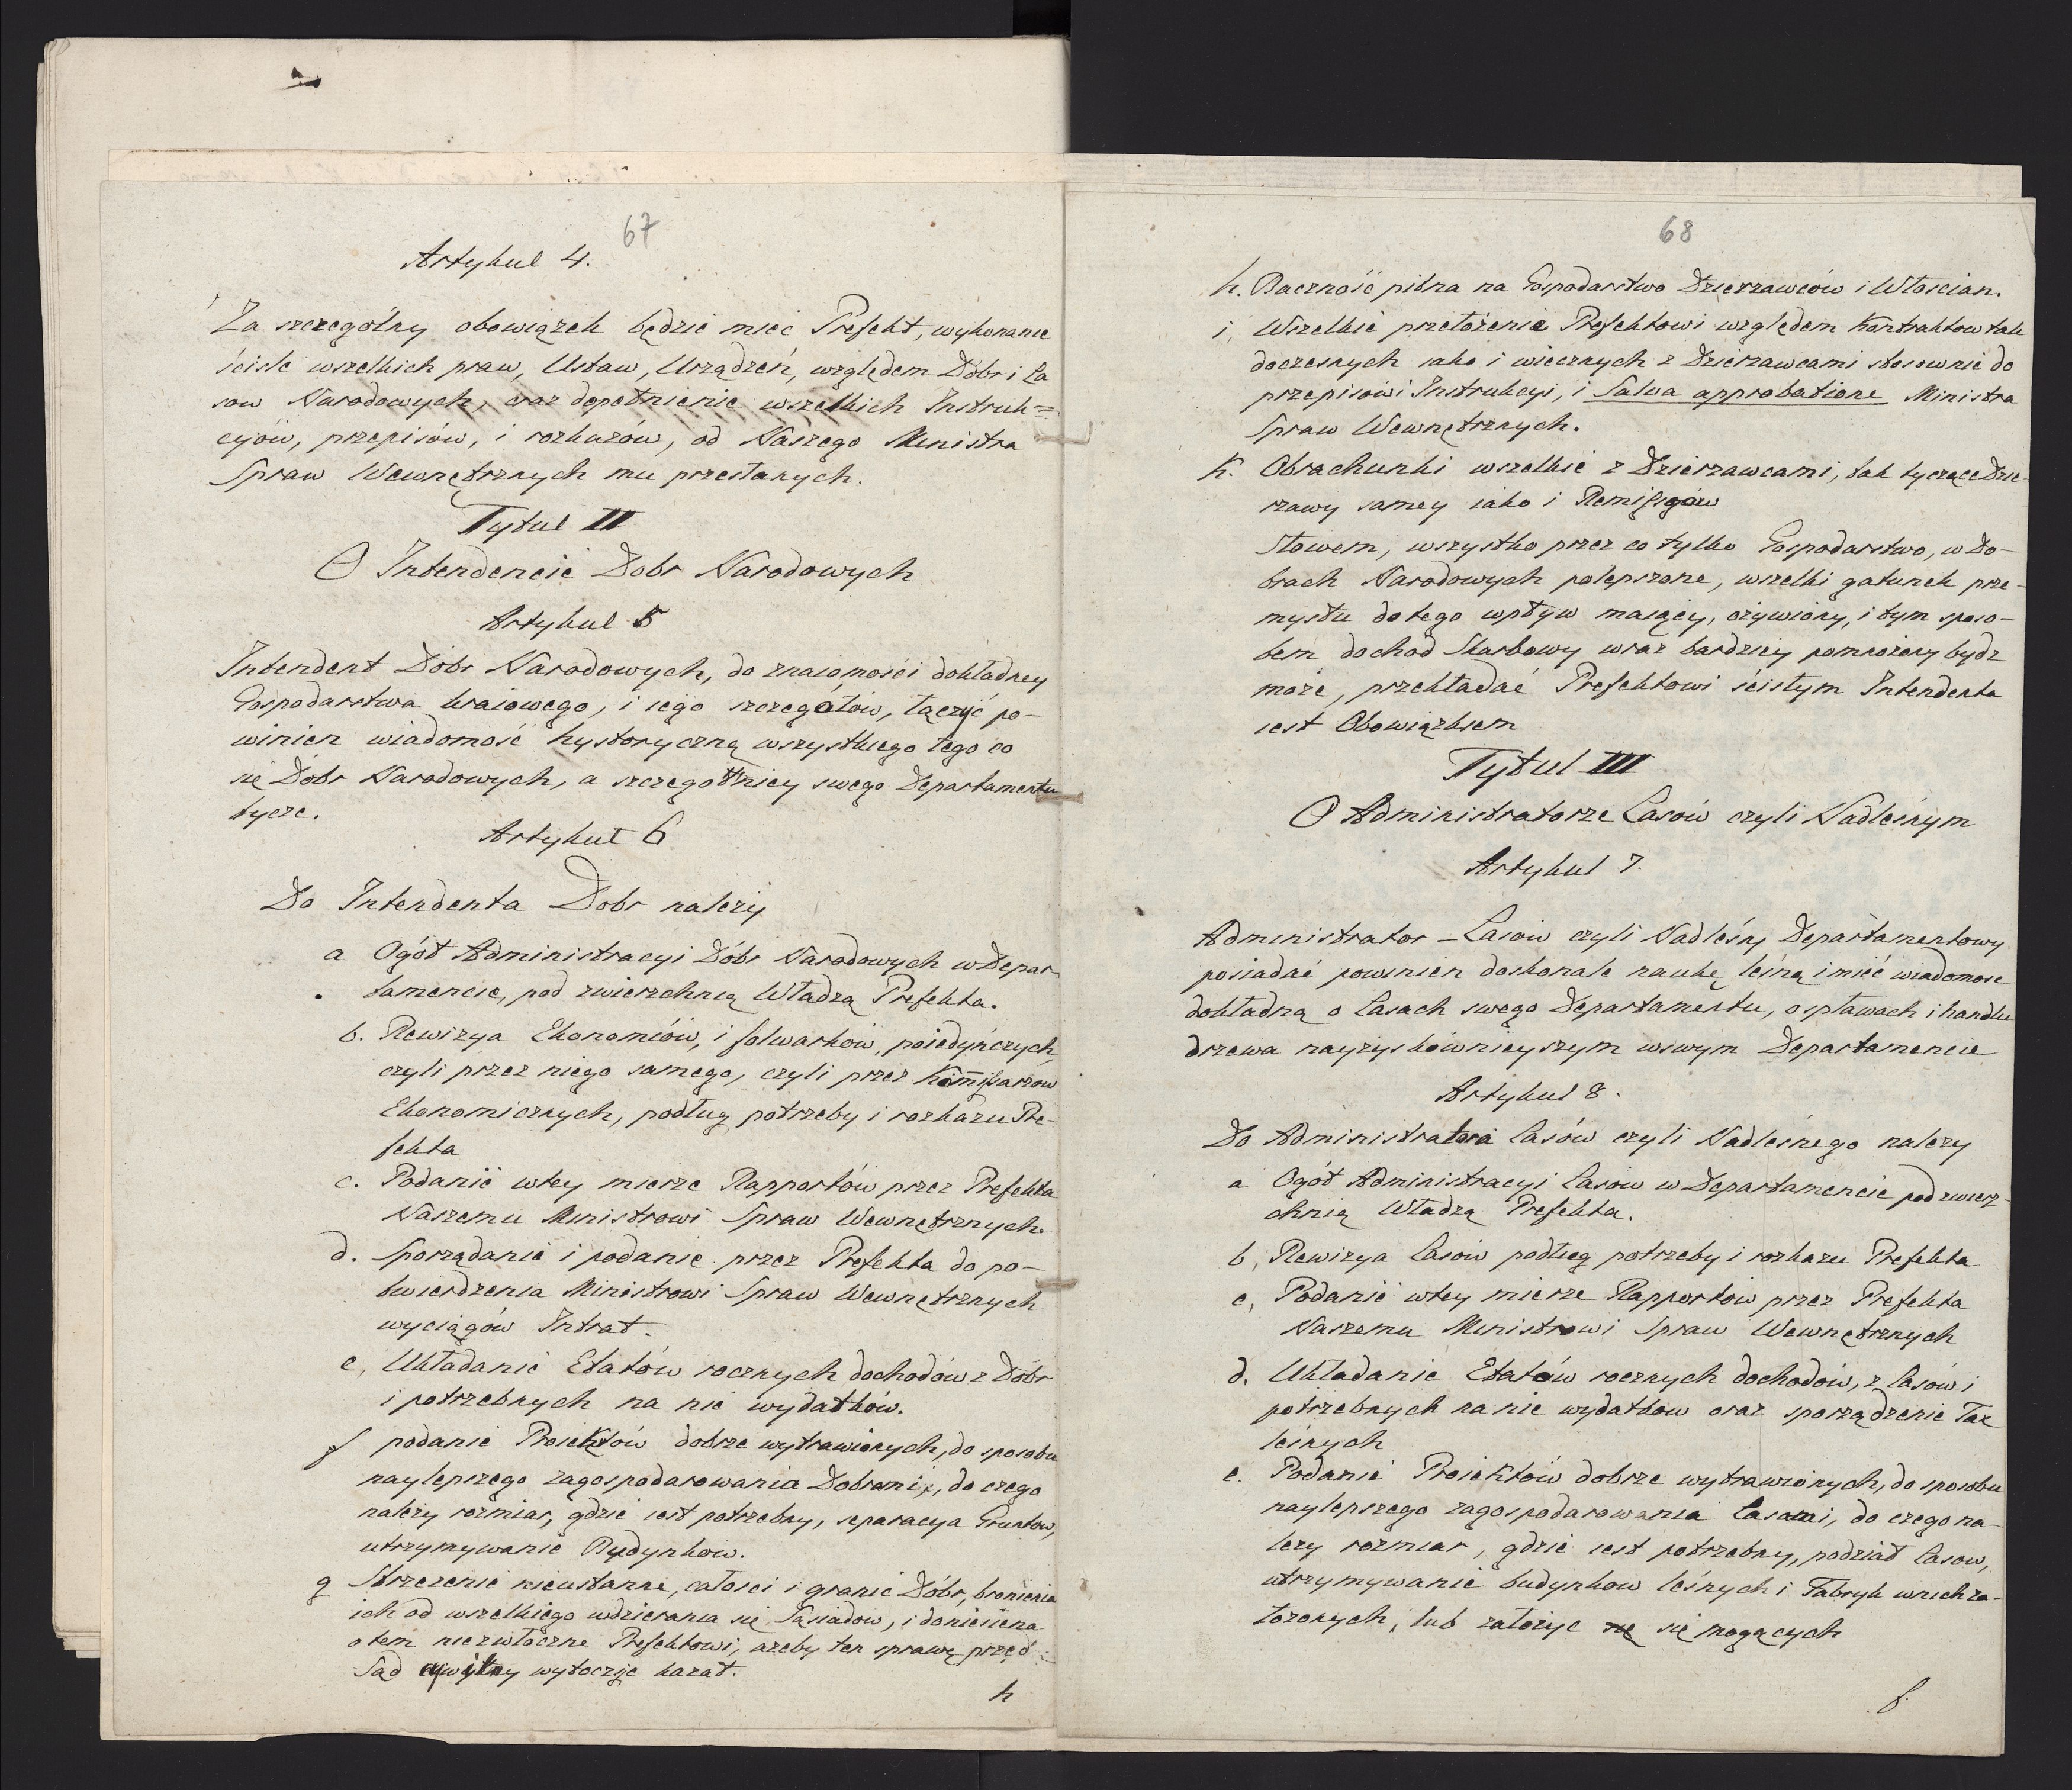 67
Artykul 4.
Za szczegolny obowiązek będzie mieć Prefekt, wykonanie
ścisle wszelkich praw, Ustaw, Urządzeń, względem Dóbr i La
sow Narodowych, oraz dopełnienie wszelkich Instruk=
cyiów, przepisów, i rozkazów, od Naszego Ministra
Spraw Wewnętrznych mu przesłanych.
Tytul II
O Intendencie Dobr Narodowych
Artykul 5
Intendent Dóbr Narodowych, do znaiomości dokładney
Gospodarstwa kraiowego, i iego szczegółów, łączyć po-
winien wiadomość hystoryczną wszystkiego tego co
się Dobr Narodowych, a szczegolniey swego Departamentu
tycze.
Artykuł 6
Do Intendenta Dobr należy
a Ogół Administracyi Dóbr Narodowych w Depar-
tamencie, pod zwierzchnią Władzą Prefekta.
b. Rewizya Ekonomiów, i folwarków, poiedyńczych,
czyli przez niego samego, czyli przez Kom̄issarzow
Ekonomicznych, podług potrzeby i rozkazu Pre-
fekta
c. Podanie wtey mierze Rapportów przez Prefekta
Naszemu Ministrowi Spraw Wewnętrznych.
d. Sporządanie i podanie przez Prefekta do po-
twierdzenia Ministrowi Spraw Wewnętrznych
wyciągów Intrat.
e, Układanie Etatów rocznych dochodów z Dóbr
i potrzebnych na nie wydatków.
f podanie Proiektów dobrze wytrawionych, do sposobu
naylepszego zagospodarowania Dobrami, do czego
należy rozmiar, gdzie iest potrzebny, separacya Gruntow,
utrzymywanie Budynkow.
g Strzeżenie nieustanne, całosci i granic Dóbr, bronienia
ich od wszelkiego wdzierania się Sąsiadów, i doniesiena
otem niezwłoczne Prefektowi, azeby ten sprawę przed
Sąd cywilny wytoczyć kazał.
h
68
h. Baczność pilna na Gospodarstwo Dzierzawców i Włoscian.
i, Wszelkie przełożenie Prefektowi względem Kontraktow tak
doczesnych iako i wiecznych z Dzierzawcami stosownie do
przepisów i Instrukcyi, i Salva approbatione Ministra
Spraw Wewnętrznych.
k. Obrachunki wszelkie z Dzierzawcami, tak tyczące Dzie-
rzawy samey iako i Remissyów
Słowem, wszystko przez co tylko Gospodarstwo, w Do-
brach Narodowych polepszone, wszelki gatunek prze-
mysłu do tego wpływ maiący, ożywiony, i tym sposo-
bem dochod Skarbowy wraz bardziey pomnożony bydz
może, przekładać Prefektowi ścisłym Intendenta
iest Obowiązkiem
Tytul III
O Administratorze Lasów czyli Nadleśnym
Artykul 7.
Administrator - Lasow czyli Nadleśny Departamentowy
posiadać powinien doskonale naukę leśną i mieć wiadomosc
dokładną o Lasach swego Departamentu, o spławach i handlu
drzewa nayzyskównieyszym wswym Departamencie
Artykul 8.
Do Administratora Lasów czyli Nadlesnego nalezy
a Ogół Administracyi Lasow w Departamencie pod zwierz-
chnią Władzą Prefekta.
b, Rewizya Lasow podług potrzeby i rozkazu Prefekta
c, Podanie wtey mierze Rapportow przez Prefekta
Naszemu Ministrowi Spraw Wewnętrznych
d. Układanie Etatów rocznych dochodów, z Lasow i
potrzebnych na nie wydatkow oraz sporządzenie Tax
leśnych
e. Podanie Proiektów dobrze wytrawionych, do sposobu
naylepszego zagospodarowania Lasami, do czego na-
lezy rozmiar, gdzie iest potrzebny, podział Lasow,
utrzymywanie budynkow leśnych i Fabryk wnich za-
łozonych, lub założyc się mogących
f.